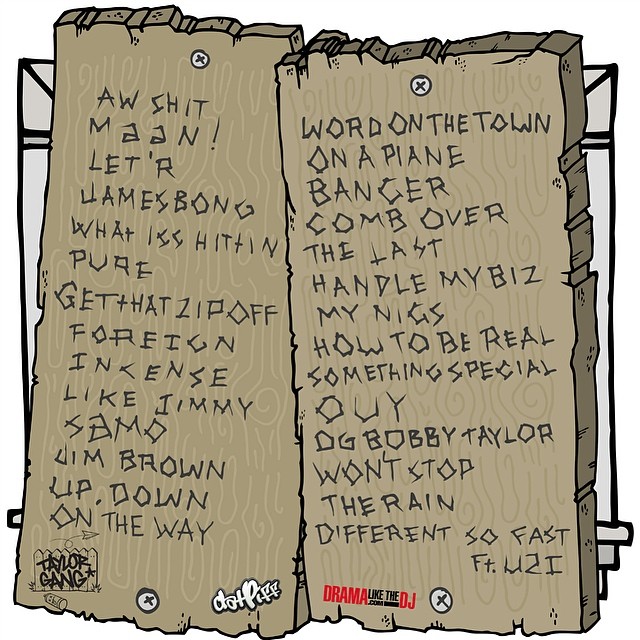 AW SHIT
MAAN!
LET'R
JAMESBONG
WHAt ISS HITtIN
PURE
GETtHAT ZIP OFF
FOREIGN
INCENSE
LIKE JIMMY
SAMO
JIM BROWN
UP, DOWN
ON THE WAY
TAYLOR
GANG
datPiff
WORD ON THE TOWN
ON A PLANE
BANGER
COMB OVER
THE LAST
HANDLE MY BIZ
MY NIGS
HOW TO BE REAL
SOMETHING SPECIAL
OUY
OG BOBBY TAYLOR
WON'T STOP
THE RAIN
DIFFERENT SO FAST
Ft. UZI
DRAMA LIKE THE DJ
.COM